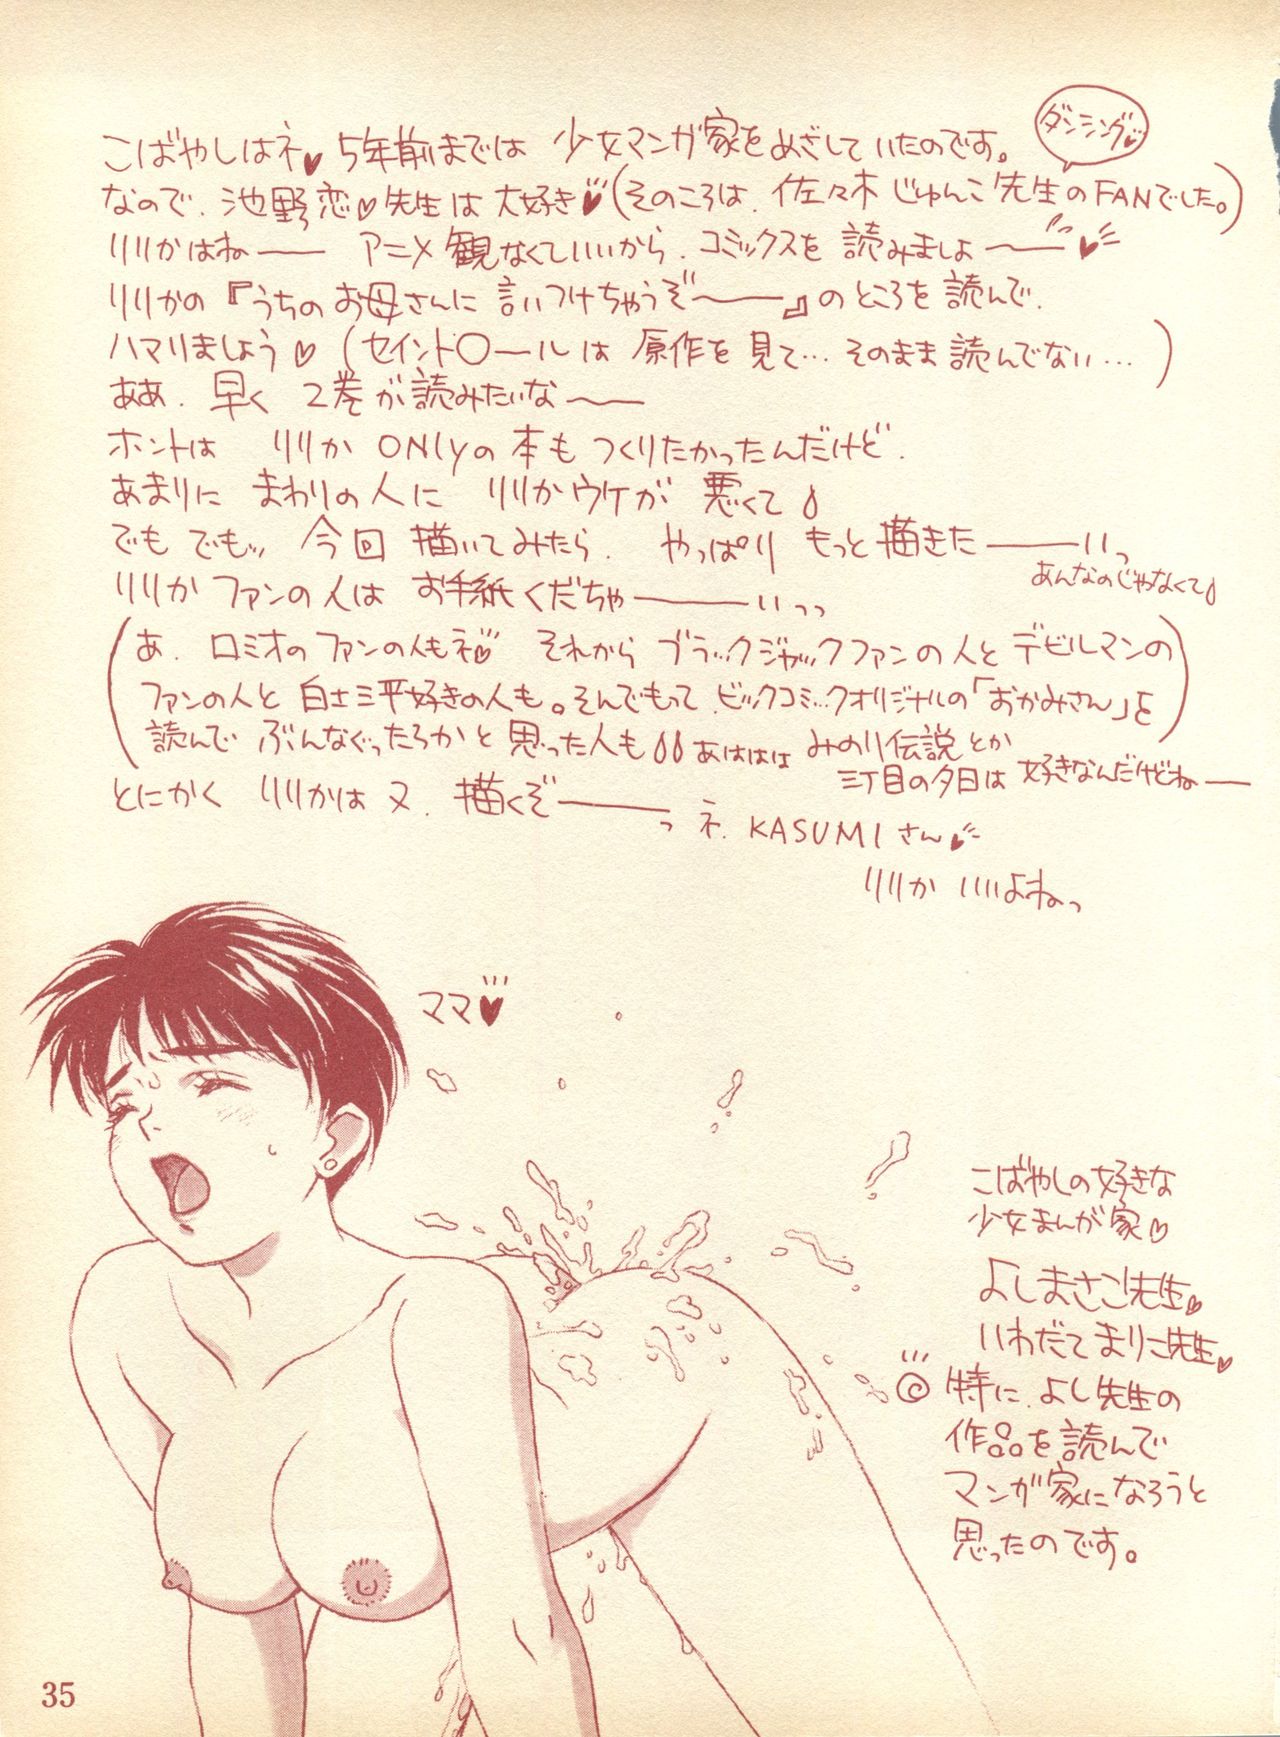 こばやしはネ♥ 5年前までは 少女マンガ家をめざしていたのです。
ダンシング♥
なので、池野恋♡先生は大好き♥(そのころは、佐々木じゅんこ先生のFANでした。)
リリかはねーー アニメ観なくていいから、コミックスを読みましょーー♥
リリかの『うちのお母さんに言いつけちゃうぞーー』のところを読んで、
ハマりましょう♡(セイント○ールは原作を見て…そのまま読んでない…)
ああ、早く2巻が読みたいなーー
ホントは リリかONLyの本もつくりたかったんだけど、
あまりに まわりの人に リリかウケが 悪くて
でもでもッ 今回描いてみたら、やっぱり もっと描きたーーいっ
あんなのじゃなくて
リリかファンの人は お手紙くだちゃーーいっっ
(あ、ロミオのファンの人もネ♡ それから ブラックジャックファンの人とデビルマンの
ファンの人と 白土三平好きの人も。そんでもって、ビックコミックオリジナルの「おかみさん」を
読んで ぶんなぐったろかと思った人も あははは みのり伝説とか
三丁目の夕日は 好きなんだけどねー
とにかく リリかは又、描くぞーーっ ネ、KASUMIさん♥
リリか いいよねっ
ママ♥
こばやしの好きな
少女まんが家♡
よしまさこ先生♡
いわだてまりこ先生♡
特に、よし先生の
作品を読んで
マンガ家になろうと
思ったのです。
35